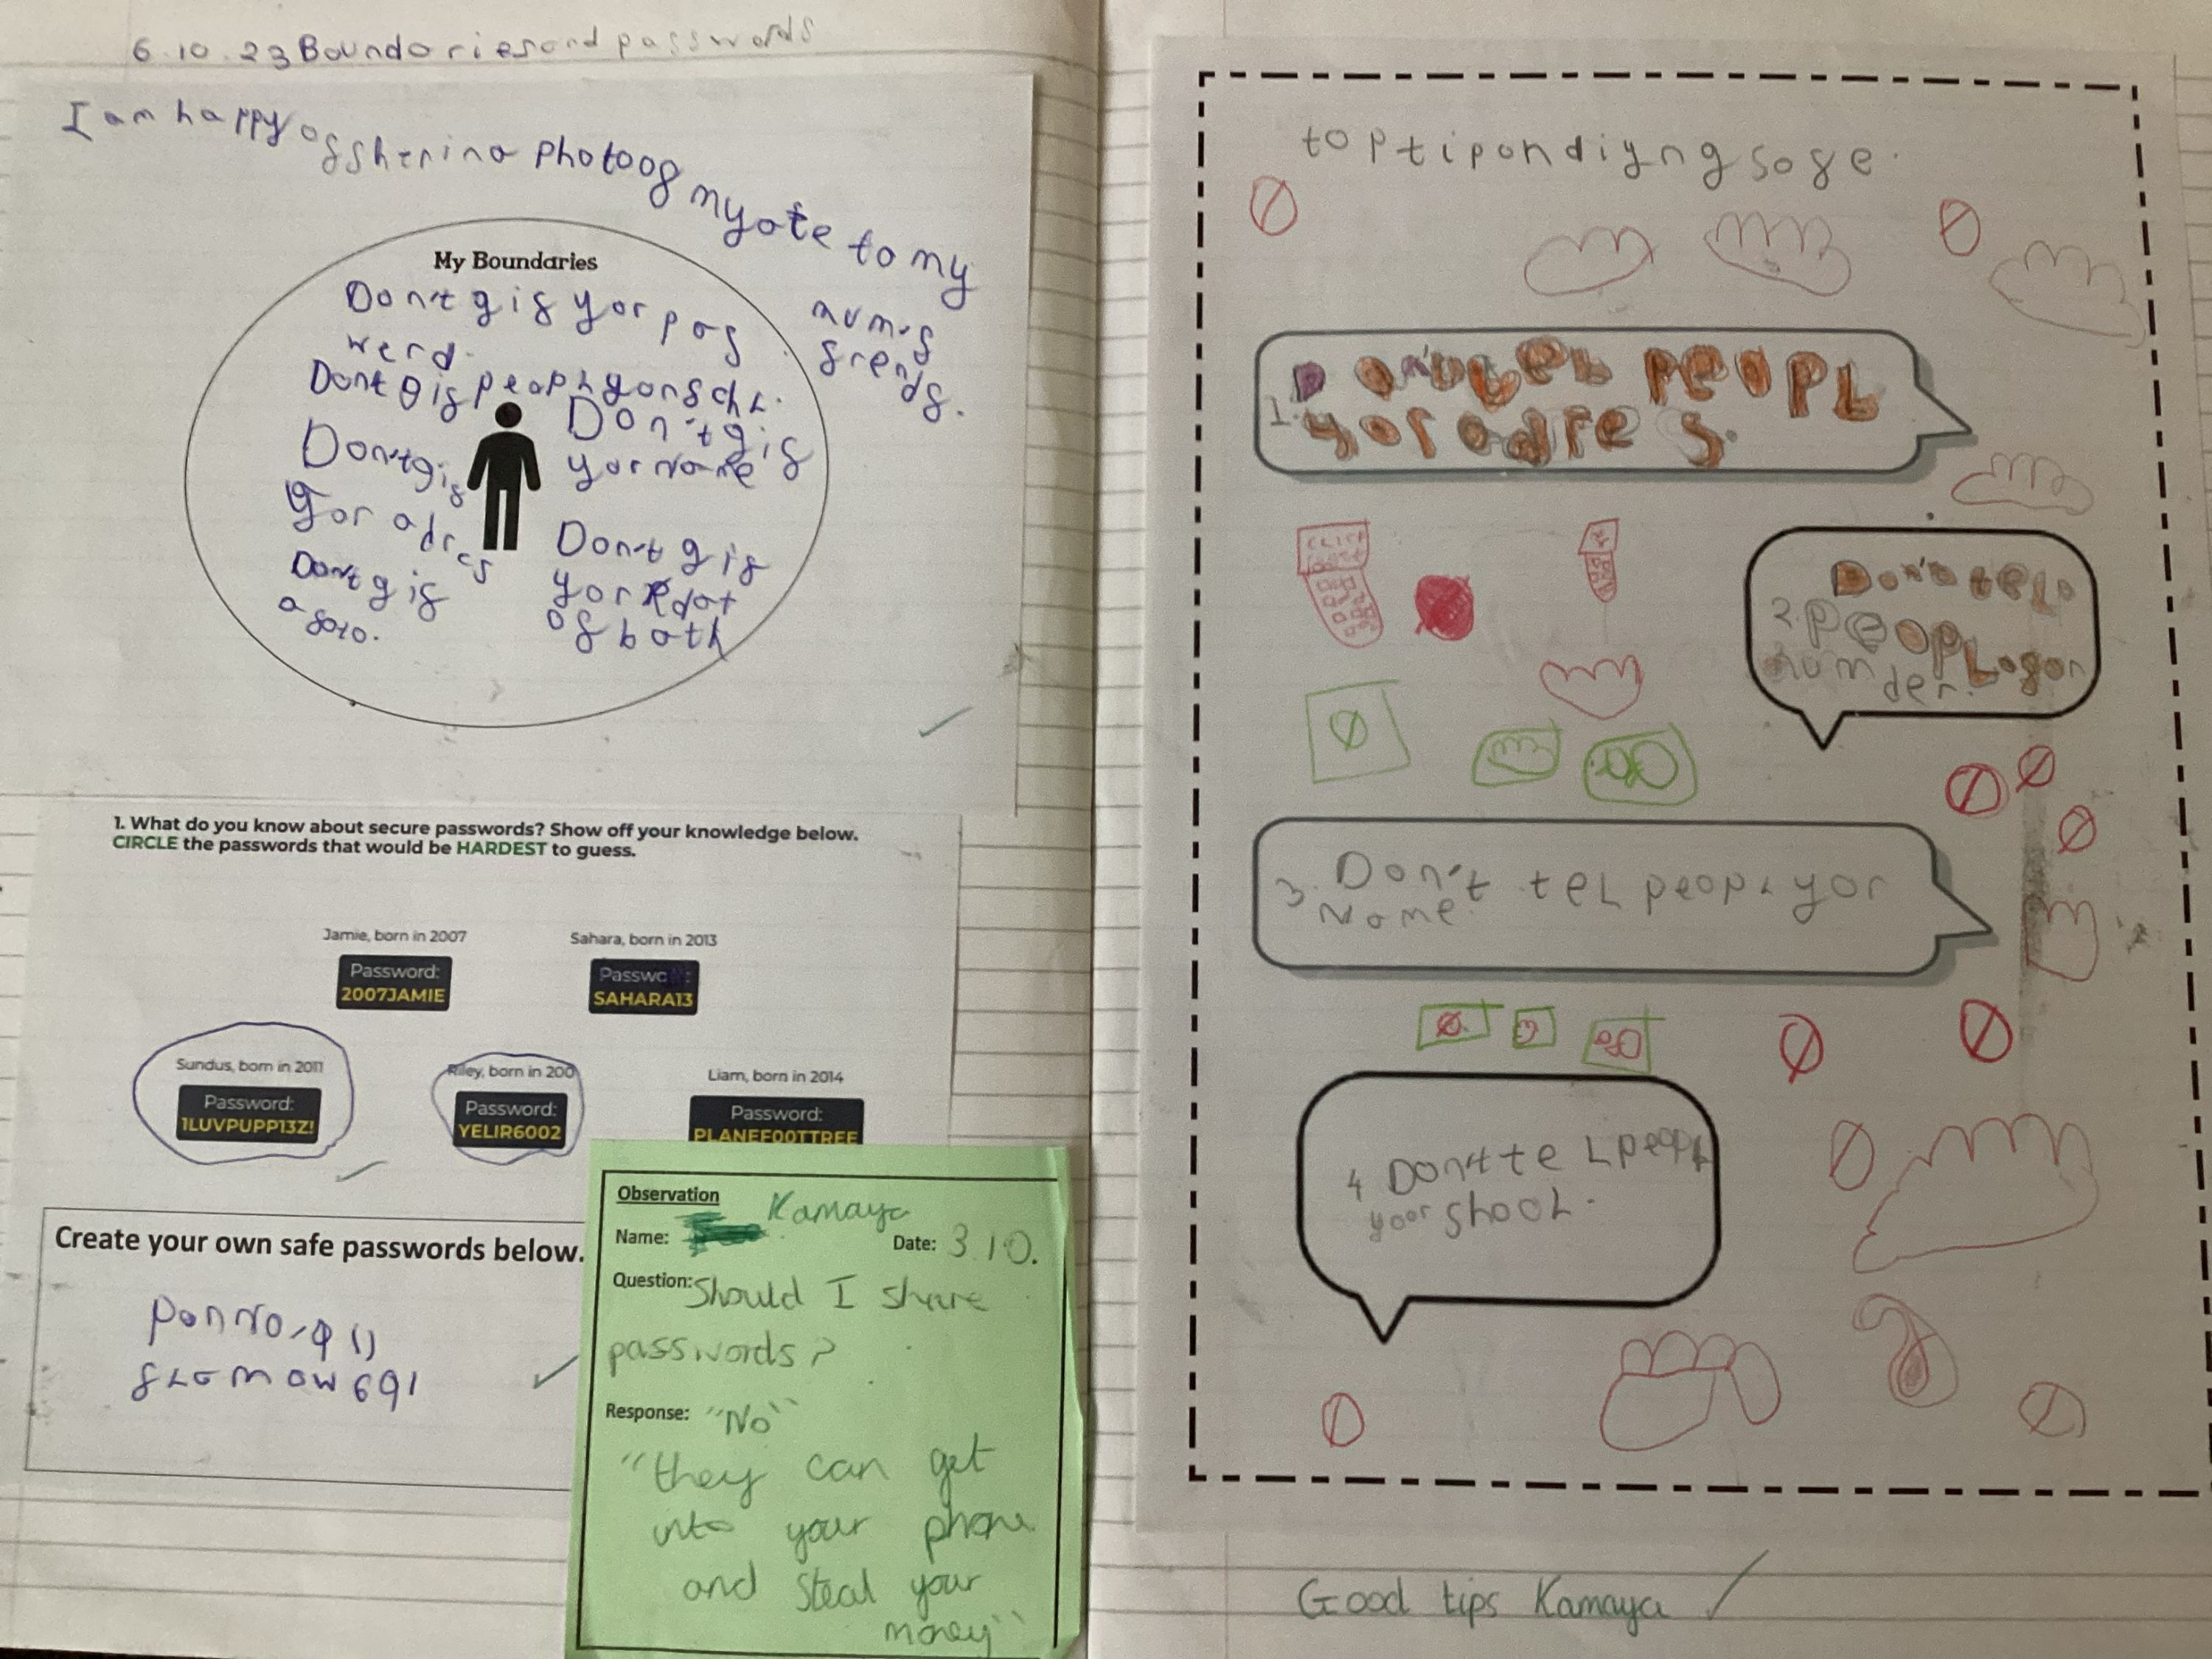 6.10.23 Boundaries and passwords
I am happy of sherina photo of my ate to my
mum's
frends.
My Boundaries
Don't gif yor pas
werd.
Dont gif peopl yor schl.
Don't gif
yor name
Don't gif
yor adres
Don't gif
yor dat
of bath
Dont gif
a foto.
1. What do you know about secure passwords? Show off your knowledge below.
CIRCLE the passwords that would be HARDEST to guess.
Jamie, born in 2007
Password:
2007JAMIE
Sahara, born in 2013
SAHARA13
Sundus, born in 2011
Password:
1LUVPUPP13Z!
Riley, born in 200
Password:
YELIR6002
Liam, born in 2014
Password:
PLANEF00TTREE
Create your own safe passwords below.
691
Observation
Name: Kamaya
Date: 3.10.
Question: Should I share
passwords?
Response: "No"
"they can get
into your phone
and steal your
money"
top tip on diyng safe.
1. Don't tel peopl
yor adres.
2. Don't tel
peopl yor
number.
3. Don't tel peopl yor
Name.
4 Don't tel peopl
yoor shool.
Good tips Kamaya